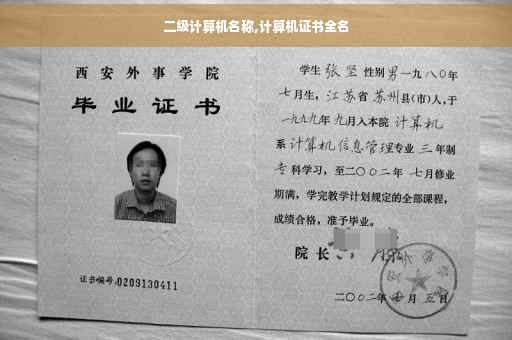 二级计算机名称,计算机证书全名
西安外事学院
毕业证书
证书编号:0209130411
学生 张坚 性别 男 一九八0年
七月生,江苏省 苏州县(市)人,于
一九九九年 九月入本院 计算机
系 计算机信息管理专业 三年制
专科学习,至二〇〇二年 七月修业
期满,学完教学计划规定的全部课程,
成绩合格,准予毕业。
院长
二〇〇二年 月五日